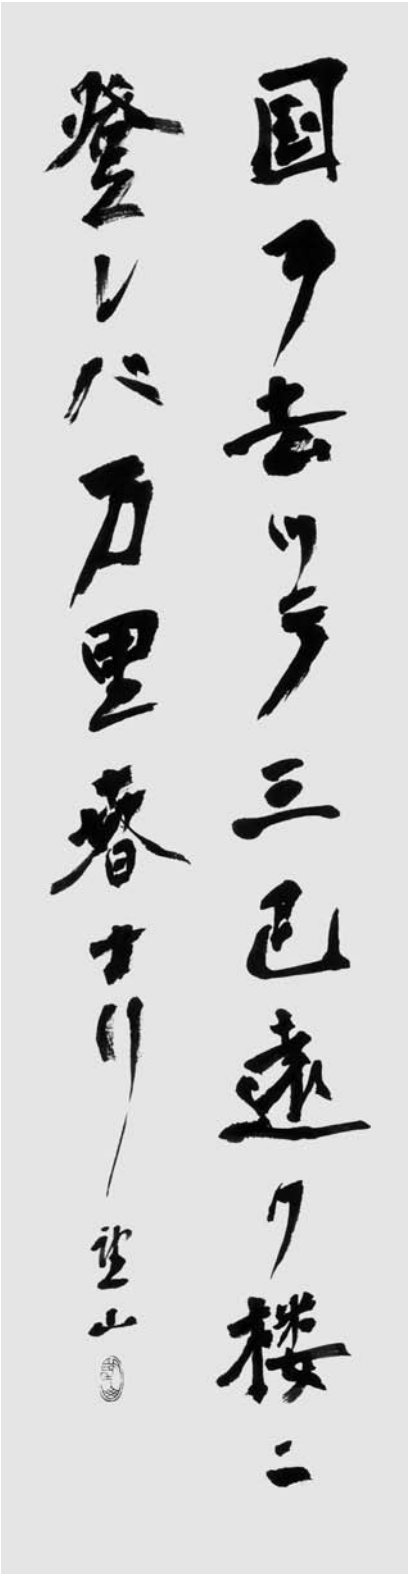 国ヲ去ツテ三巴遠ク楼ニ
登レバ万里春ナリ
望山